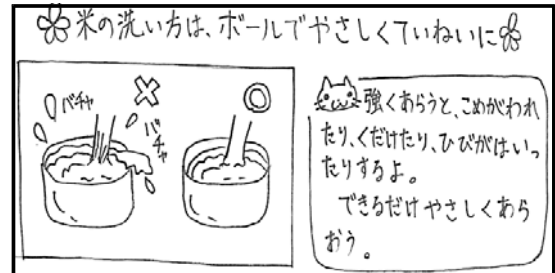 米の洗い方は、ボールでやさしくていねいに
バチャ
バチャ
強くあらうと、こめがわれ
たり、くだけたり、ひびがはいっ
たりするよ。
できるだけやさしくあら
おう。